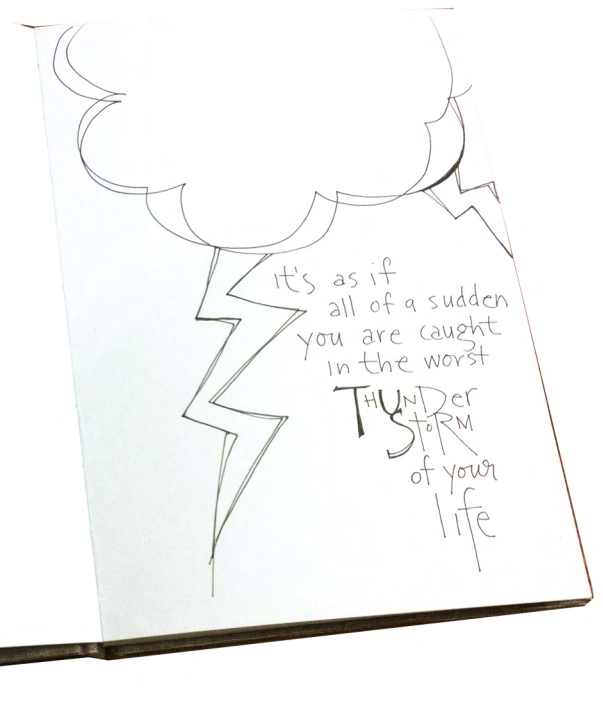 it's as if
all of a sudden
you are caught
in the worst
THUNDer
StoRM
of your
life